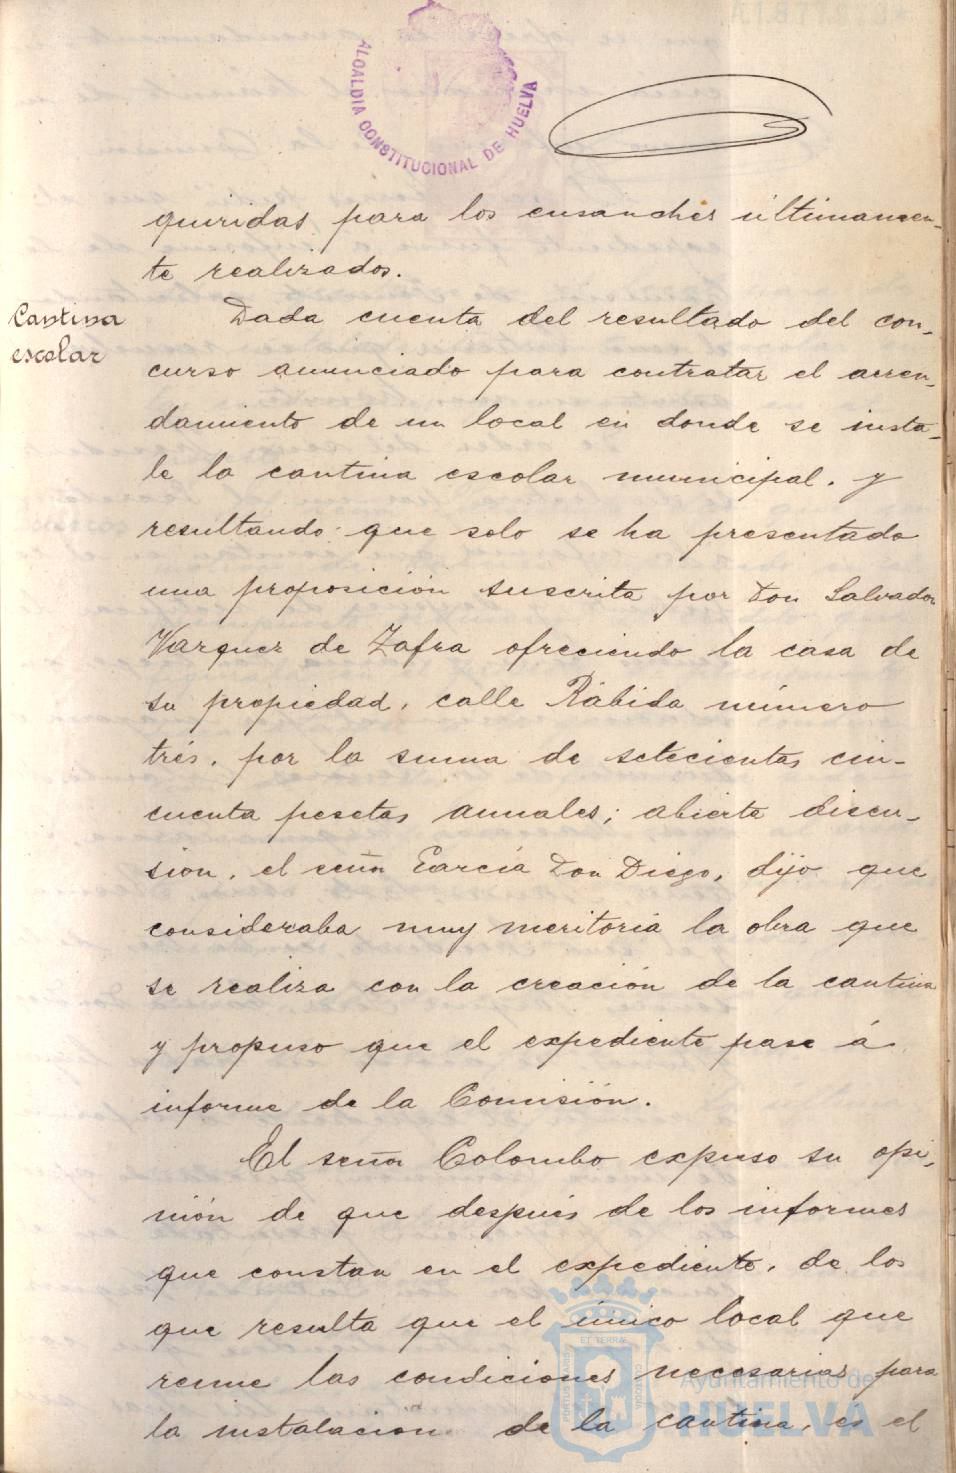 ALCALDIA CONSTITUCIONAL DE HUELVA
quiridas para los ensanches últimamen-
te realizados.
Cantina
escolar
Dada cuenta del resultado del con-
curso anunciado para contratar el arren-
damiento de un local en donde se insta-
le la cantina escolar municipal, y
resultando que solo se ha presentado
una proposición suscrita por Don Salvador
Vazquez de Zafra ofreciendo la casa de
su propiedad, calle Rábida número
trés, por la suma de setecientas cin-
cuenta pesetas anuales; abierta discu-
sion, el señor García Don Diego, dijo que
consideraba muy meritoria la obra que
se realiza con la creación de la cantina
y propuso que el expediente pase á
informe de la Comisión.
El señor Colombo expuso su opi-
nión de que después de los informes
que constan en el expediente, de los
que resulta que el único local que
reune las condiciones necesarias para
la instalación de la cantina, es el
ET TERRÆ
PORTUS MARIS
CUSTODIA
Ayuntamiento de
HUELVA